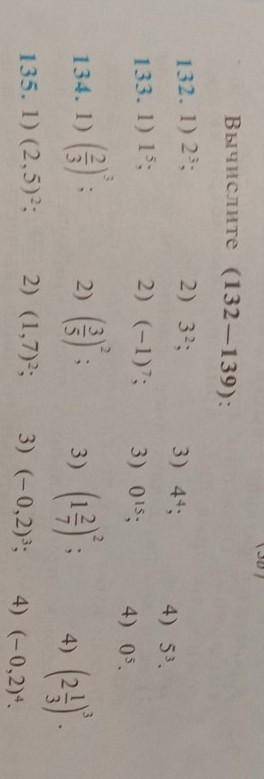 Вычислите (132—139):
132. 1) 2³; 2) 3²; 3) 4⁴; 4) 5³.
133. 1) 1⁵; 2) (−1)⁷; 3) 0¹⁵; 4) 0⁵.
134. 1) (2/3)³; 2) (3/5)²; 3) (1 2/7)²; 4) (2 1/3)³.
135. 1) (2,5)²; 2) (1,7)²; 3) (−0,2)³; 4) (−0,2)⁴.